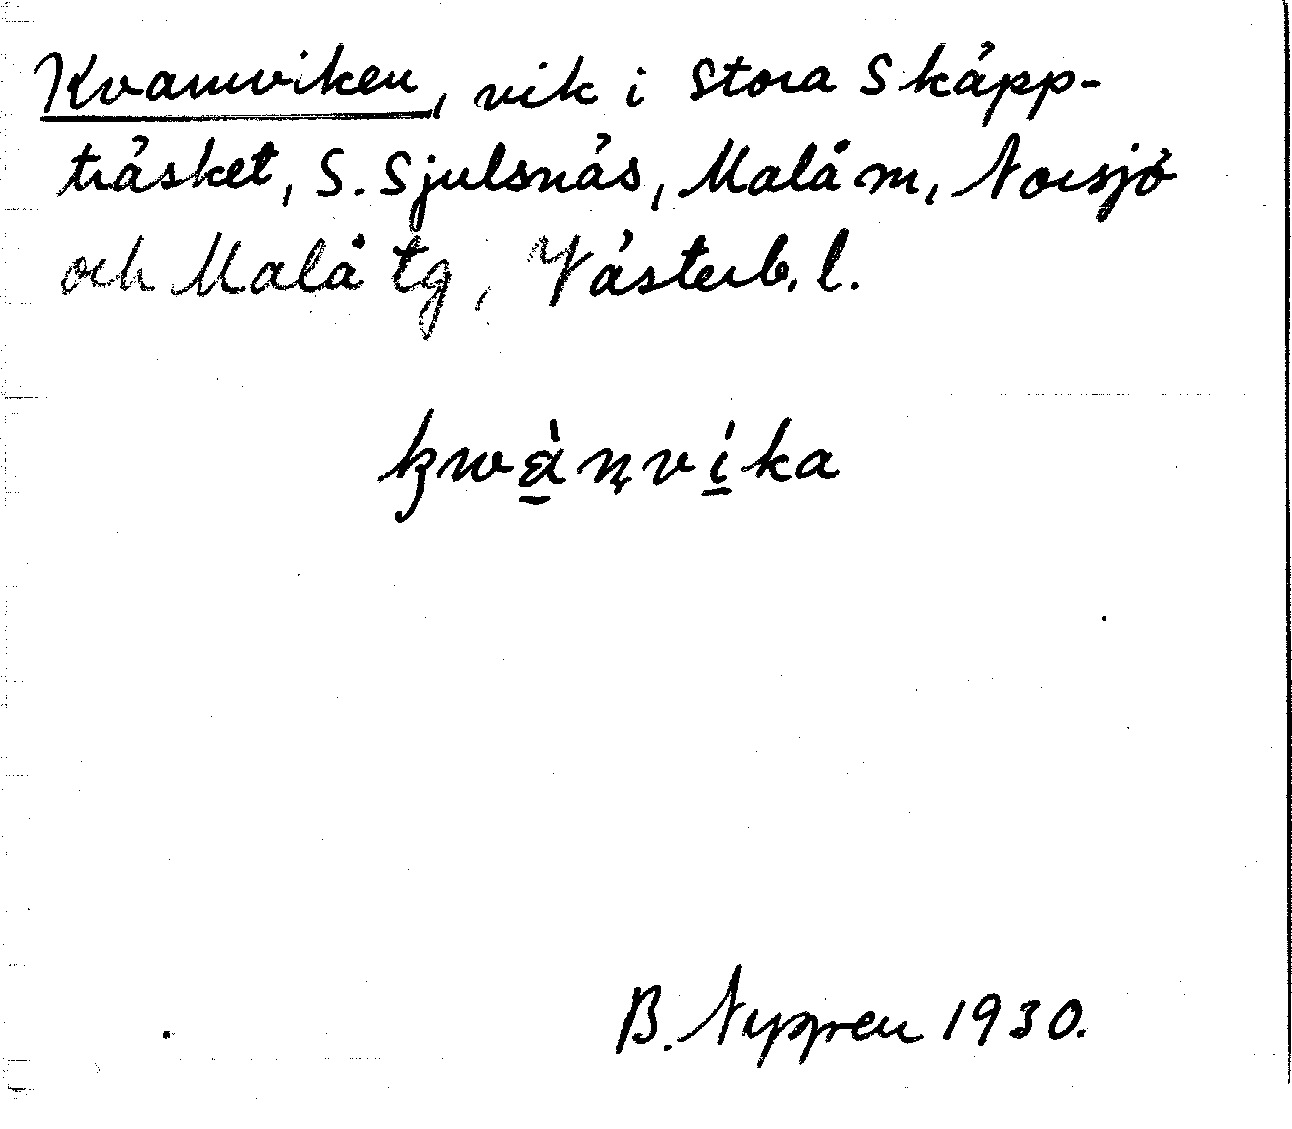 Kvarnviken, vik i Stora Skäpp-
träsket, S. Sjulsnäs, Malå m, Norsjö
och Malå tg, Västerb. l.
kwàṇvíka
B. Nyppren 1930.